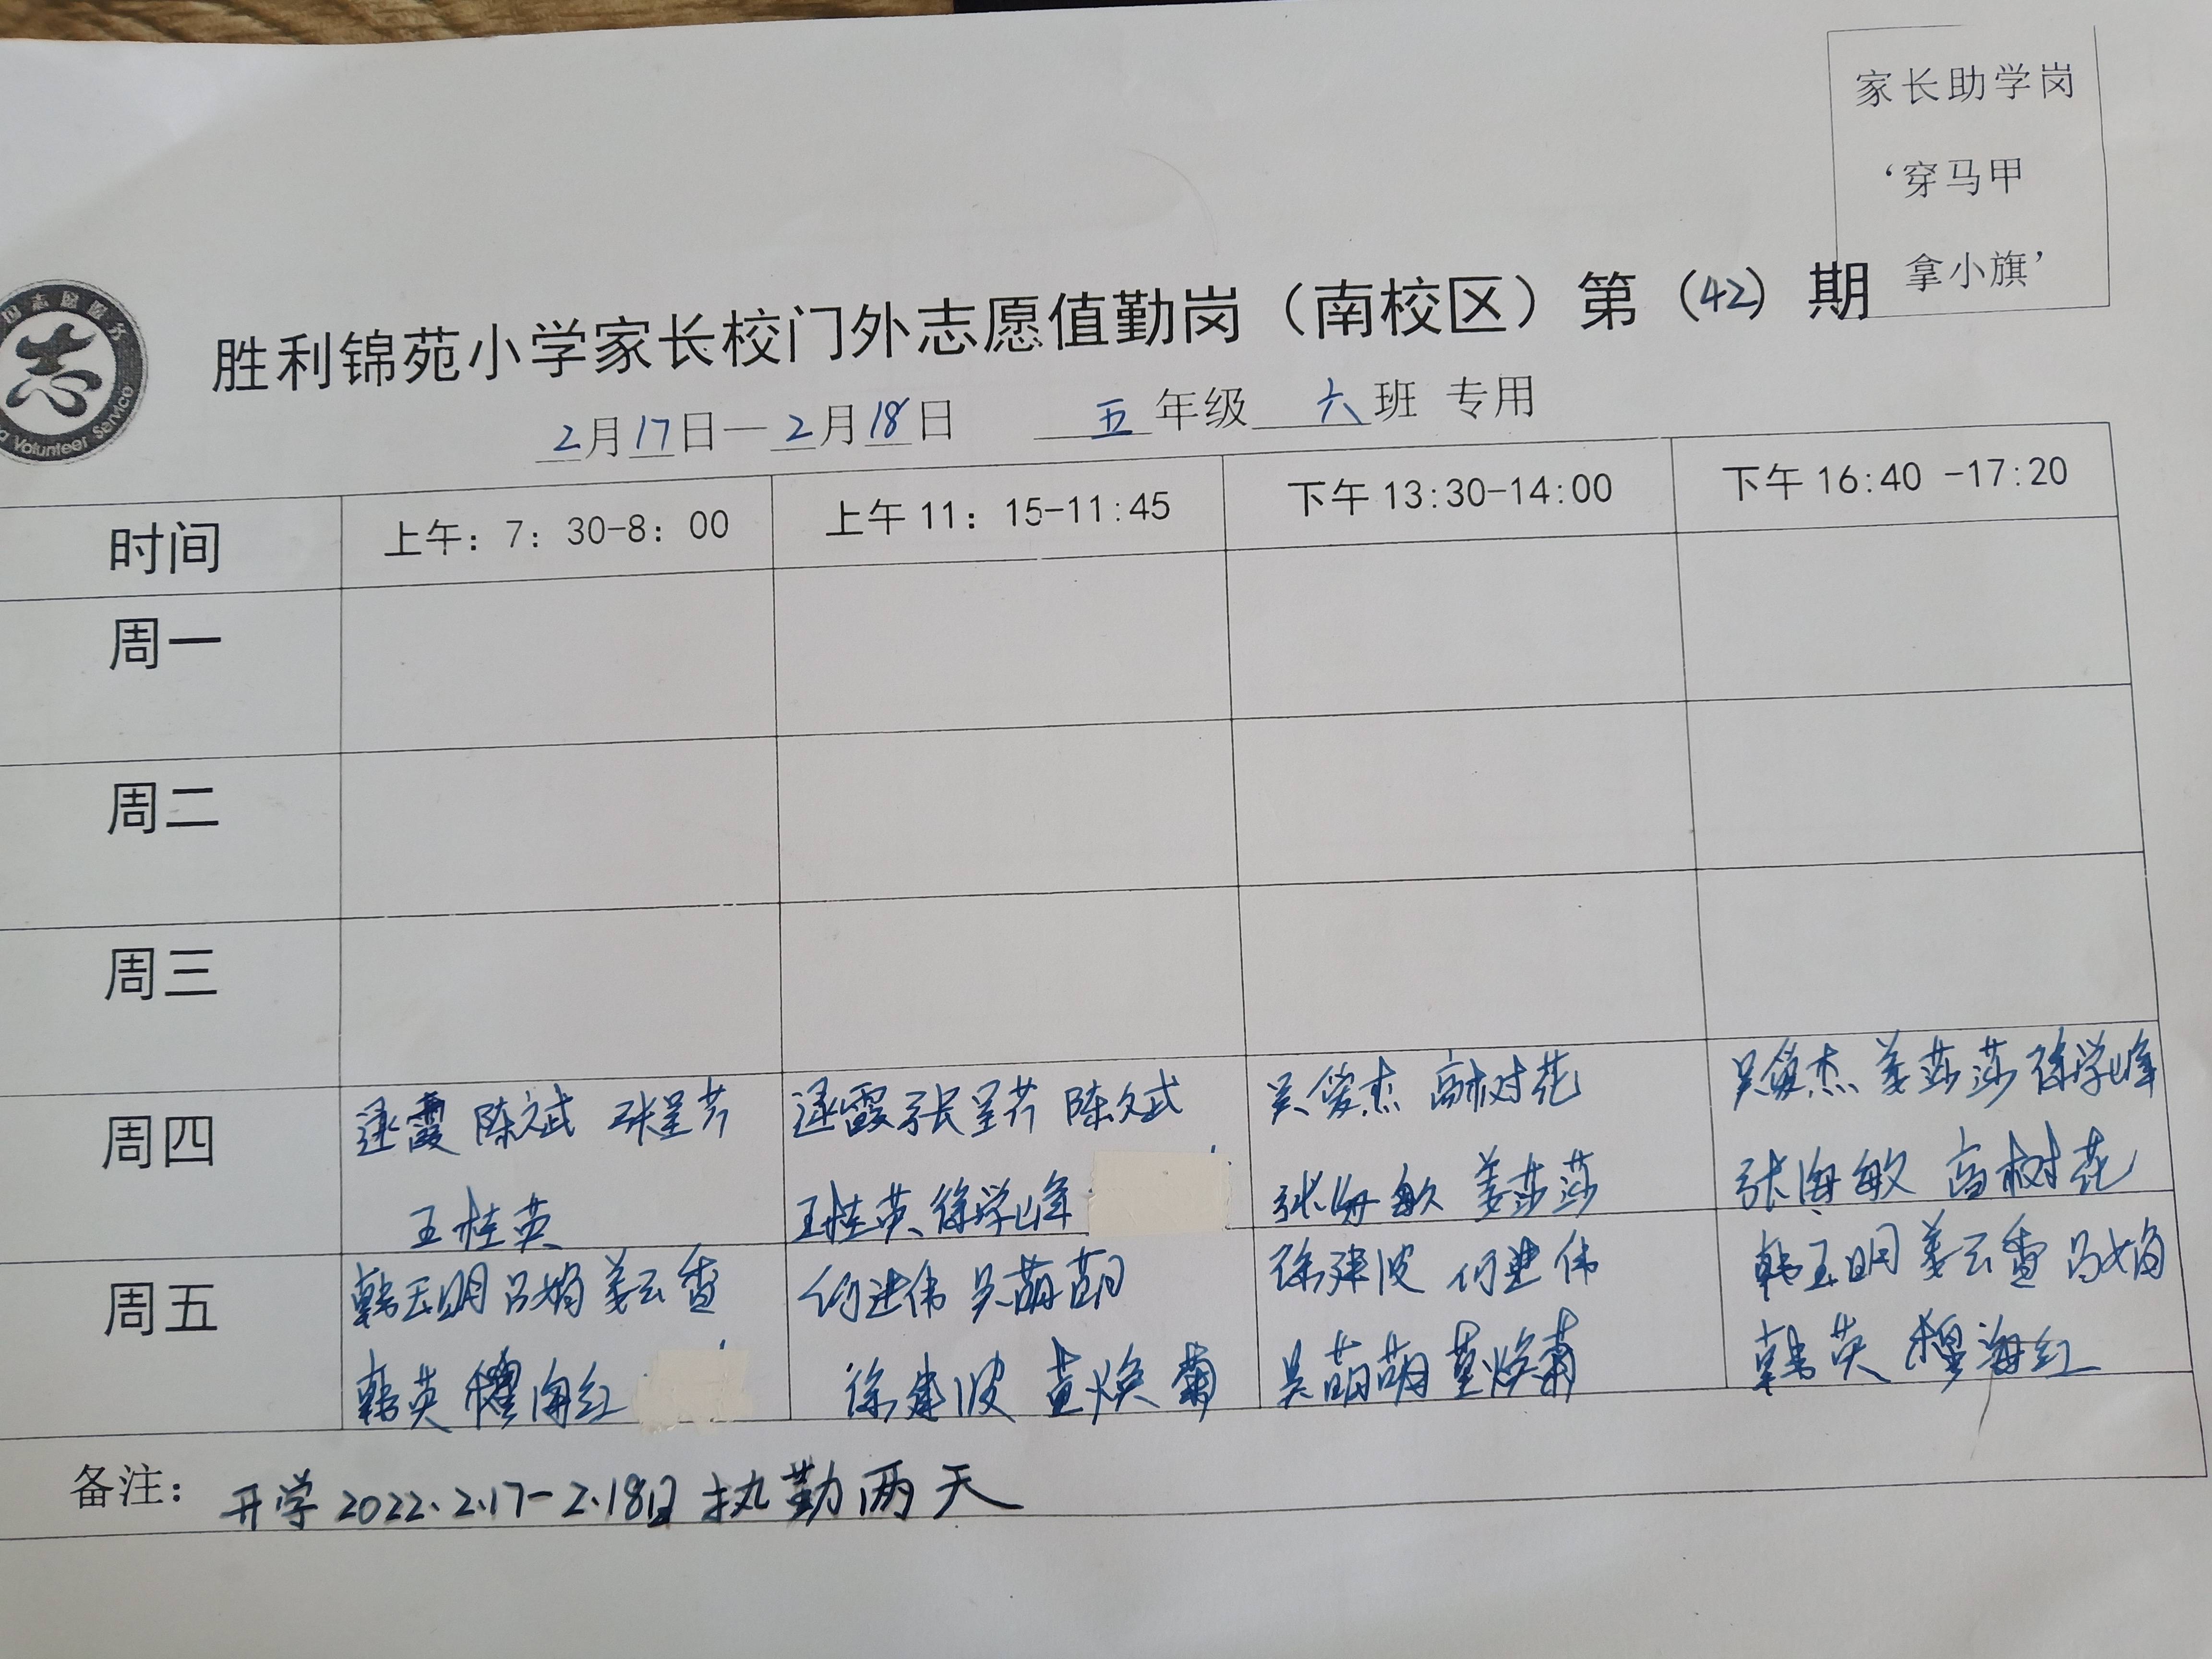 家长助学岗
‘穿马甲
拿小旗’
胜利锦苑小学家长校门外志愿值勤岗（南校区）第（42）期
2月17日—2月18日 五年级 六班 专用
志
Volunteer Service
时间 上午：7：30-8：00 上午 11：15-11:45 下午 13:30-14:00 下午 16:40 -17:20
周一
周二
周三
周四
逯霞 陈文斌 张呈芹
王桂英
逯霞 张呈芹 陈文斌
王桂英 徐学峰
吴俊杰 高树花
张海敏 姜莎莎
吴俊杰 姜莎莎 徐学峰
张海敏 高树花
周五
韩玉明 吕娟 姜云香
韩英 穆海红
何建伟 吴萌萌
徐建波 黄焕菊
徐建波 何建伟
吴萌萌 黄焕菊
韩玉明 姜云香 吕娟
韩英 穆海红
备注：开学2022.2.17-2.18日执勤两天